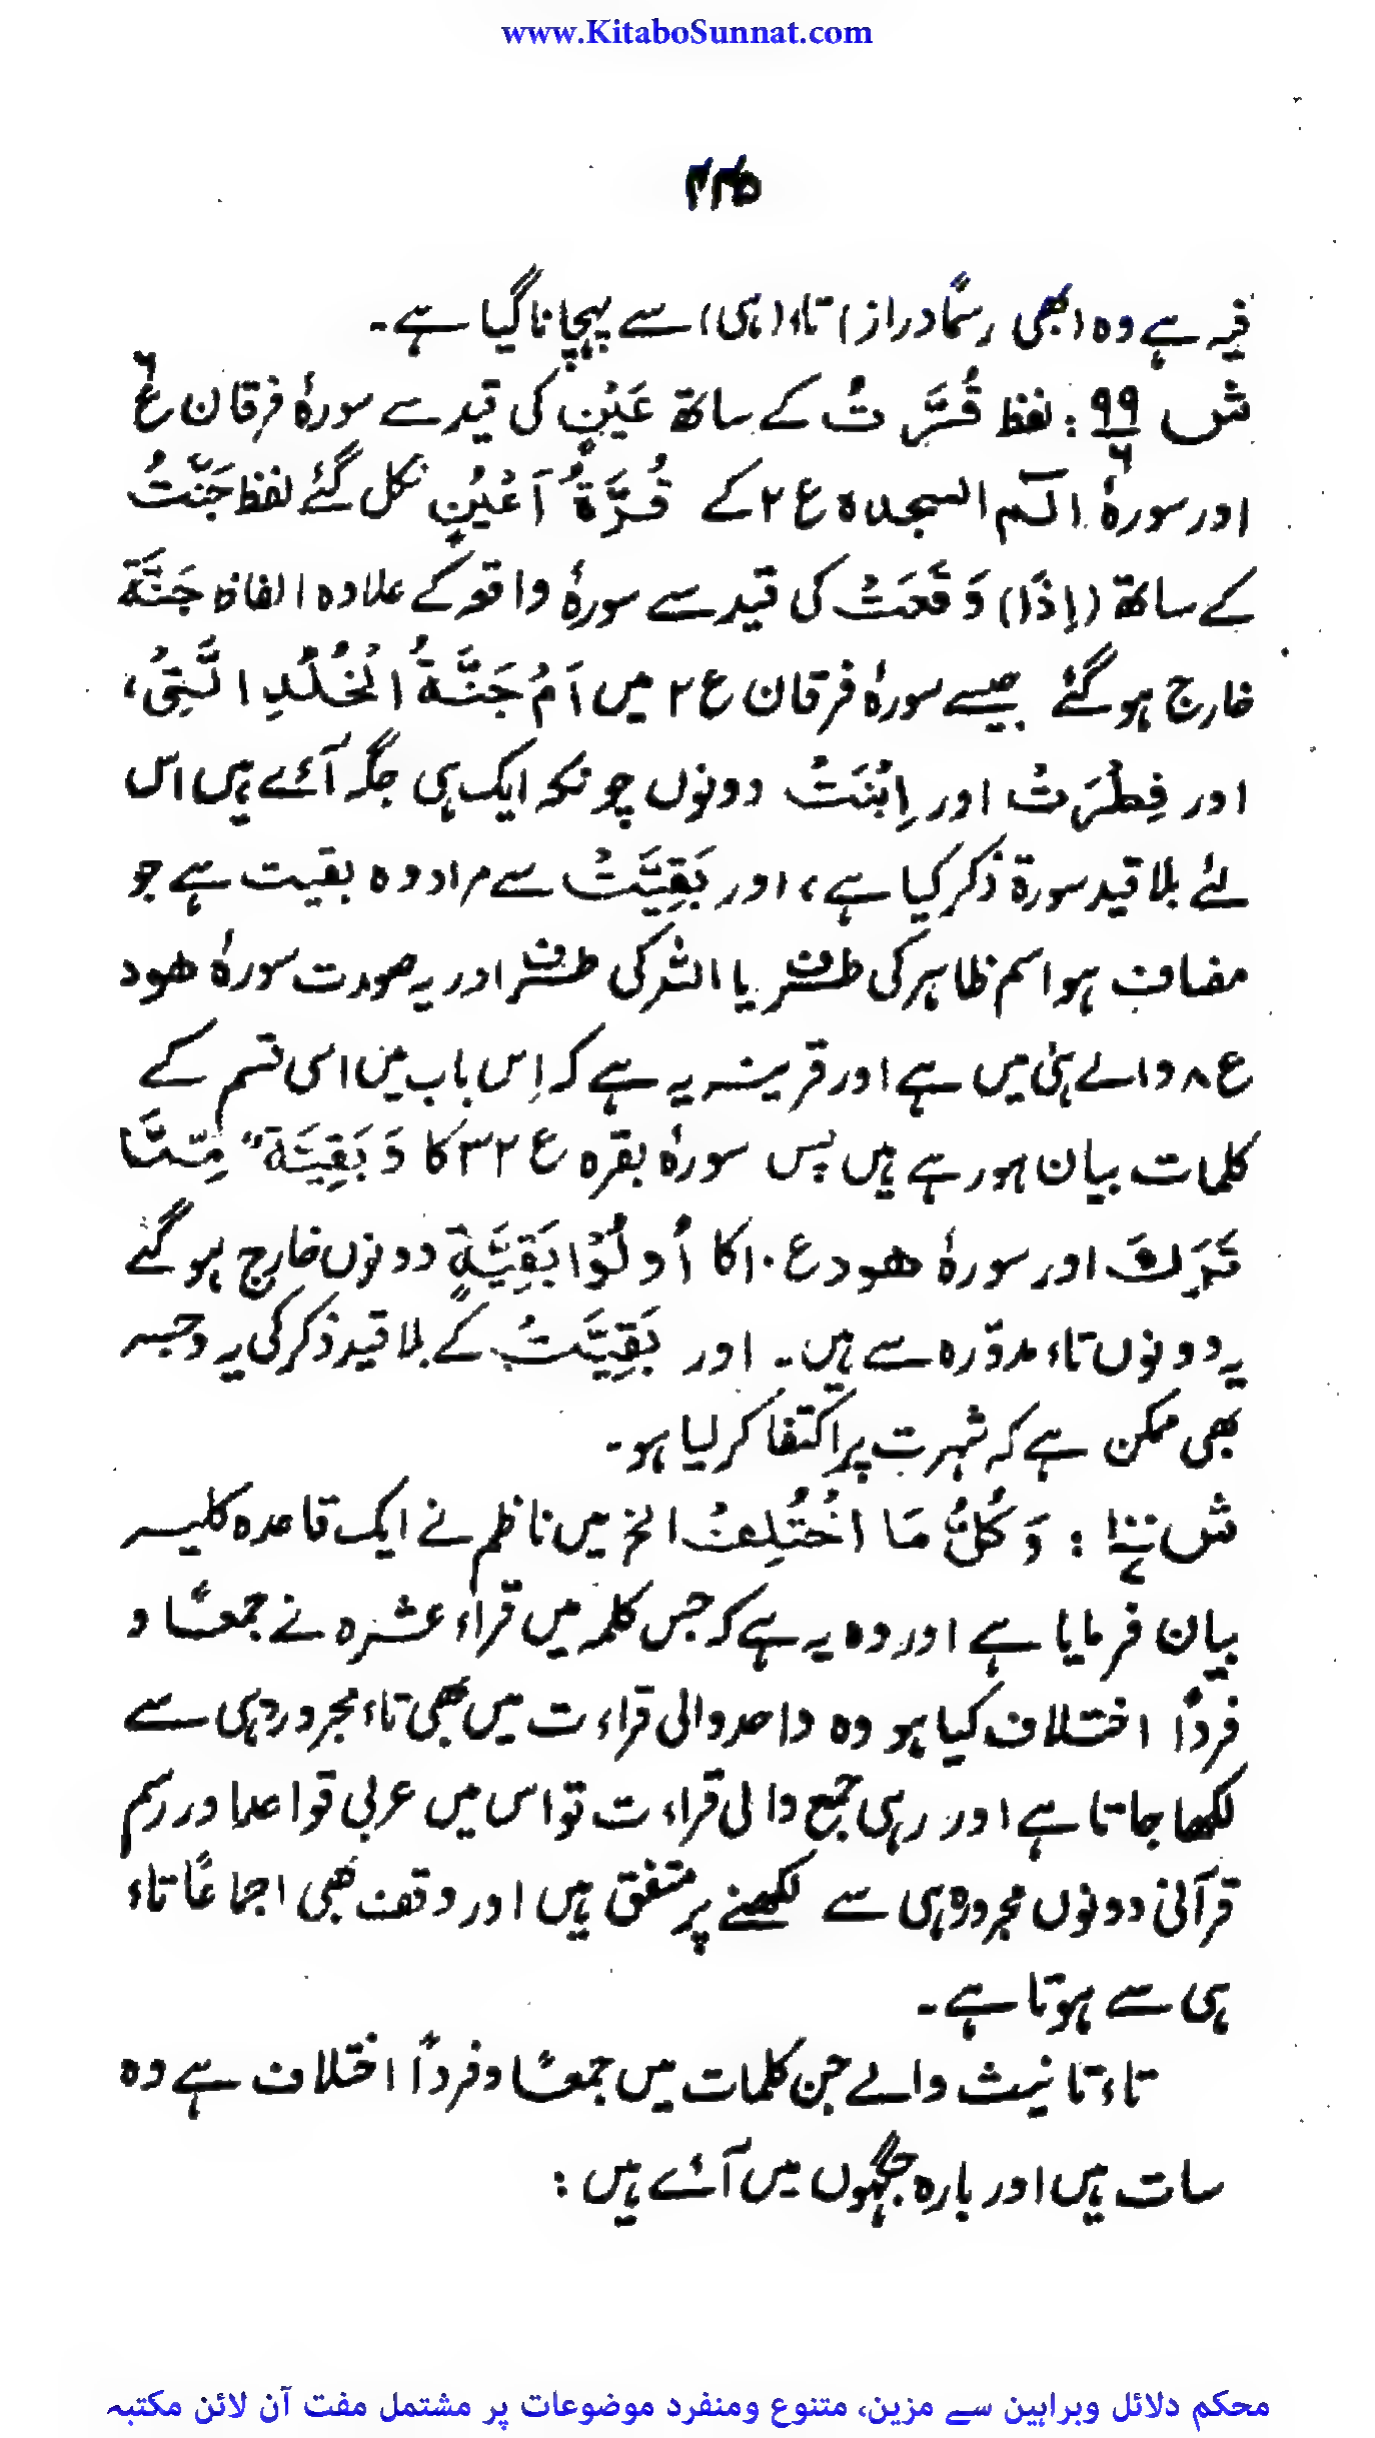 www.KitaboSunnat.com
۲۲۵
فیہ ہے وہ (بھی رسمًا دراز) تاء (ہی) سے پہچانا گیا ہے۔
ش ۹۹/۶ : لفظ قُرَّتُ کے ساتھ عَیْنٍ کی قید سے سورۂ فرقان ع۶
اور سورۂ الٓم السجدہ ع۲ کے قُرَّةُ اَعْیُنٍ نکل گئے لفظ جَنَّتُ
کے ساتھ (اِذَا) وَقَعَتْ کی قید سے سورۂ واقعہ کے علاوہ الفاظ جَنَّة
خارج ہو گئے جیسے سورۂ فرقان ع۲ میں اَمْ جَنَّةُ الْخُلْدِ الَّتِیْ،
اور فِطْرَتْ اور اِبْنَتْ دونوں چونکہ ایک ہی جگہ آئے ہیں اس
لئے بلا قید سورۃ ذکر کیا ہے، اور بَقِیَّتْ سے مراد وہ بقیت ہے جو
مضاف ہو اسم ظاہر کی طرف یا اللہ کی طرف اور یہ صورت سورۂ ھود
ع۸ والے ہی میں ہے اور قرینہ یہ ہے کہ اِس باب میں اسی قسم کے
کلمات بیان ہو رہے ہیں پس سورۂ بقرہ ع۳۲ کا وَبَقِیَّةٌ مِّمَّا
تَرَكَ اور سورۂ ھود ع۱۰ کا اُولُوْا بَقِیَّةٍ دونوں خارج ہو گئے
یہ دونوں تاء مدوّرہ سے ہیں۔ اور بَقِیَّتُ کے بلا قید ذکر کی یہ وجہ
بھی ممکن ہے کہ شہرت پر اکتفا کر لیا ہو۔
ش ۱۰۰/۷ : وَكُلُّ مَا اخْتُلِفْ الخ میں ناظم نے ایک قاعدہ کلیہ
بیان فرمایا ہے اور وہ یہ ہے کہ جس کلمہ میں قراء عشرہ نے جمعًا و
فردًا اختلاف کیا ہو وہ واحد والی قراءت میں بھی تاء مجرورہ ہی سے
لکھا جاتا ہے اور رہی جمع والی قراءت تو اس میں عربی قواعد اور رسم
قرآنی دونوں مجرورہ ہی سے لکھنے پر متفق ہیں اور وقف بھی اجماعًا تاء
ہی سے ہوتا ہے۔
تاء تانیث والے جن کلمات میں جمعًا و فردًا اختلاف ہے وہ
سات ہیں اور بارہ جگہوں میں آئے ہیں :
محکم دلائل وبراہین سے مزین، متنوع ومنفرد موضوعات پر مشتمل مفت آن لائن مکتبہ